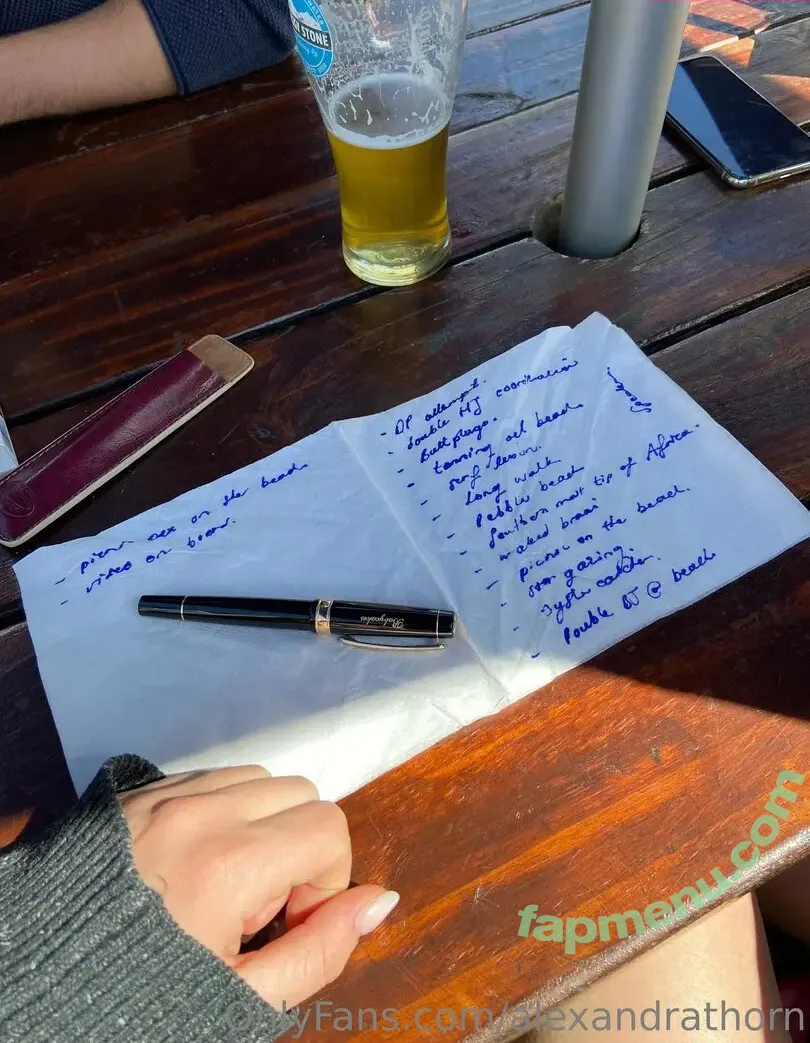 STONE
- DP attempt.
- double HJ coordination
- Buttplugs.
- tanning at beach
- surf lesson.
- Long walk
- Pebble beach
- Southern most tip of Africa.
- naked braai
- picnic on the beach.
- star gazing
- oyster catcher.
- Double BJ @ beach
- picnic sex on the beach
- video on boat.
Babycakes
fapmenu.com
OnlyFans.com/alexandrathorn